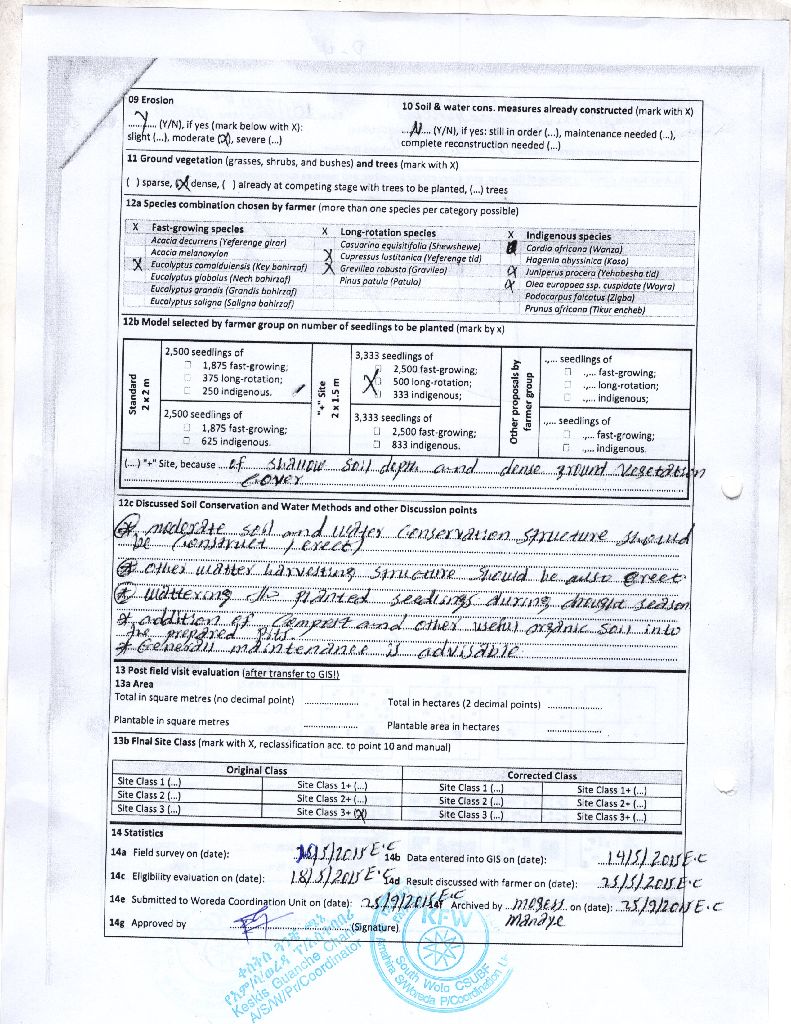 09 Erosion
Y (Y/N), if yes (mark below with X):
slight (...), moderate (X), severe (...)
10 Soil & water cons. measures already constructed (mark with X)
N (Y/N), if yes: still in order (...), maintenance needed (...),
complete reconstruction needed (...)
11 Ground vegetation (grasses, shrubs, and bushes) and trees (mark with X)
( ) sparse, (X) dense, ( ) already at competing stage with trees to be planted, (...) trees
12a Species combination chosen by farmer (more than one species per category possible)
X Fast-growing species
Acacia decurrens (Yeferenge girar)
Acacia melanoxylon
X Eucalyptus camalduiensis (Key bahirzaf)
Eucalyptus globolus (Nech bahirzaf)
Eucalyptus grandis (Grandis bahirzaf)
Eucalyptus saligna (Saligna bahirzaf)
X Long-rotation species
Casuarina equisitifolia (Shewshewe)
X Cupressus lustitanica (Yeferenge tid)
X Grevillea robusta (Gravilea)
Pinus patula (Patula)
X Indigenous species
Cordia africana (Wanza)
Hagenia abyssinica (Koso)
X Juniperus procera (Yehabesha tid)
X Olea europaea ssp. cuspidate (Woyra)
Podocarpus falcatus (Zigba)
Prunus africana (Tikur encheb)
12b Model selected by farmer group on number of seedlings to be planted (mark by x)
Standard
2 x 2 m
2,500 seedlings of
1,875 fast-growing;
375 long-rotation;
250 indigenous.
2,500 seedlings of
1,875 fast-growing;
625 indigenous.
"+" Site
2 x 1.5 m
3,333 seedlings of
2,500 fast-growing;
X 500 long-rotation;
333 indigenous;
3,333 seedlings of
2,500 fast-growing;
833 indigenous.
Other proposals by
farmer group
.,... seedlings of
.,... fast-growing;
.,... long-rotation;
.,... indigenous;
.,... seedlings of
.,... fast-growing;
.,... indigenous.
(...) "+" Site, because of shallow soil depth and dense ground vegetation
cover
12c Discussed Soil Conservation and Water Methods and other Discussion points
* moderate soil and water conservation structure should
be construct (erect)
* other watter harvesting structure should be also erect
* wattering the planted seedlings during drought season
* addition of compost and other useful organic soil into
the prepared pits
* General maintenance is advisable
13 Post field visit evaluation (after transfer to GIS!)
13a Area
Total in square metres (no decimal point) .....................
Total in hectares (2 decimal points) .....................
Plantable in square metres .....................
Plantable area in hectares .....................
13b Final Site Class (mark with X, reclassification acc. to point 10 and manual)
Original Class
Corrected Class
Site Class 1 (...) Site Class 1+ (...) Site Class 1 (...) Site Class 1+ (...)
Site Class 2 (...) Site Class 2+ (...) Site Class 2 (...) Site Class 2+ (...)
Site Class 3 (...) Site Class 3+ (X) Site Class 3 (...) Site Class 3+ (...)
14 Statistics
14a Field survey on (date): /5/2015 E.C
14b Data entered into GIS on (date): 14/5/2015 E.C
14c Eligibility evaluation on (date): 18/5/2015 E.C
14d Result discussed with farmer on (date): 25/5/2015 E.C
14e Submitted to Woreda Coordination Unit on (date): 25/9/2015 E.C
14f Archived by Mogess Manaye on (date): 25/9/2015 E.C
14g Approved by (Signature)
Keskis Guanche Chane
A/S/W/Pr/Coordinator
KFW
South Wolo CSUBF
Amhara S/Woreda P/Coordination